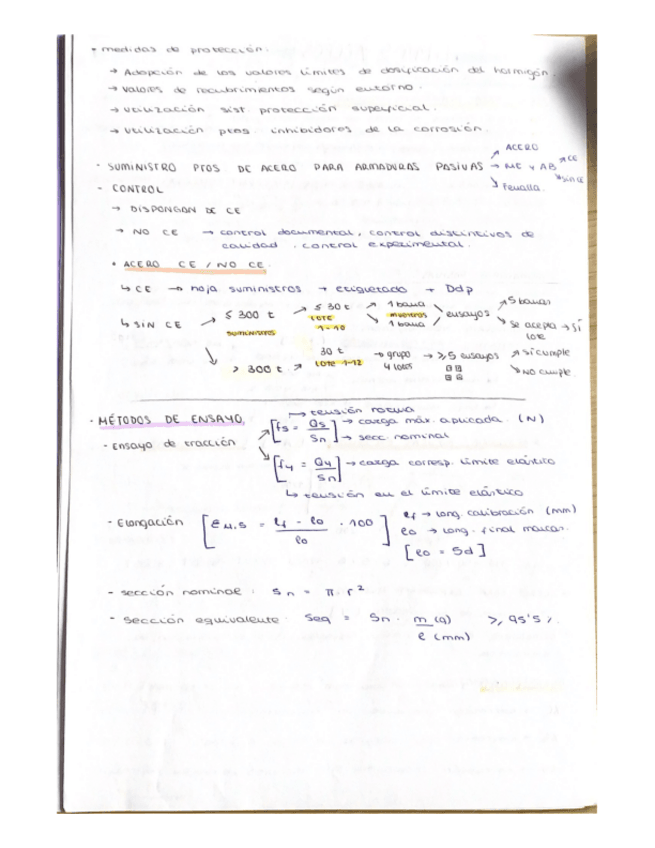 • medidas de protección.
→ Adopción de los valores límites de dosificación del hormigón.
→ valores de recubrimientos según entorno.
→ Utilización sist. protección superficial.
→ Utilización ptos. inhibidores de la corrosión.
- SUMINISTRO PTOS DE ACERO PARA ARMADURAS PASIVAS → ACERO
→ ME y AB → CE
→ sin CE
→ Ferralla.
- CONTROL
→ DISPONGAN DE CE
→ NO CE → control documental, control distintivos de
calidad. control experimental.
• ACERO CE / NO CE.
↳ CE → hoja suministros → etiquetado + Ddp
↳ SIN CE → ≤ 300 t suministros → ≤ 30 t LOTE 1-10 → 1 barra muestras 1 barra → ensayos → 5 barras
→ Se acepta → Sí
lote
→ > 300 t → 30 t LOTE 1-12 → grupo 4 lotes → ≥5 ensayos → sí cumple
→ NO cumple.
- MÉTODOS DE ENSAYO.
↦ tensión rotura
- Ensayo de tracción → [fs = Qs / Sn] → carga máx. aplicada. (N)
→ secc. nominal
→ [fy = Qy / Sn] → carga corresp. límite elástico
↳ tensión en el límite elástico
- Elongación [εu,5 = lf - lo / lo · 100] lf → long. calibración (mm)
lo → long. final marcas.
[lo = 5d]
- sección nominal: Sn = π. r²
- sección equivalente: Seq = Sn · m (g) / l (mm) ≥ 95'5 %.